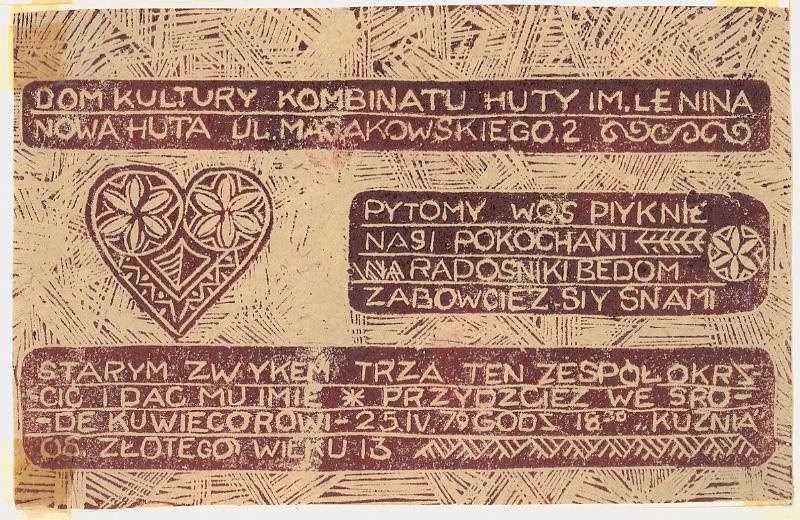 DOM KULTURY KOMBINATU HUTY IM. LENINA
NOWA HUTA UL. MAJAKOWSKIEGO 2
PYTOMY WOS PIYKNIE
NASI POKOCHANI
NA RADOŚNIKI BEDOM
ZABOWCIEZ SIY SNAMI
STARYM ZWYKEM TRZA TEN ZESPÓŁ OKRZ-
-CIĆ I DAĆ MU IMIE * PRZYDZCIEZ WE ŚRO-
-DE KU WIECOROWI - 25.IV.79 GODZ 18⁰⁰ "KUŹNIA
OŚ ZŁOTEGO WIEKU 13